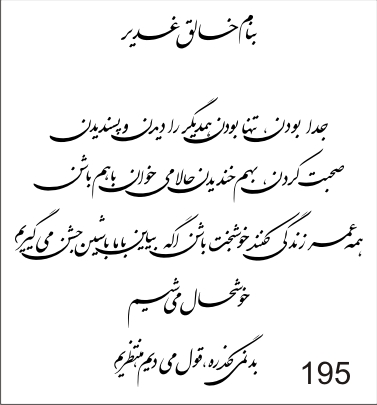 بنام خالق غدیر
جدا بودن، تنها بودن همدیگر را دیدن و پسندیدن
صحبت کردن، بهم خندیدن حالا می خوان باهم باشن
همه عمر زندگی کنند خوشبخت باشن اگه بیاین باما باشین جشن می گیریم
خوشحال می شیم
بد نمی گذره، قول می دیم منتظریم
195